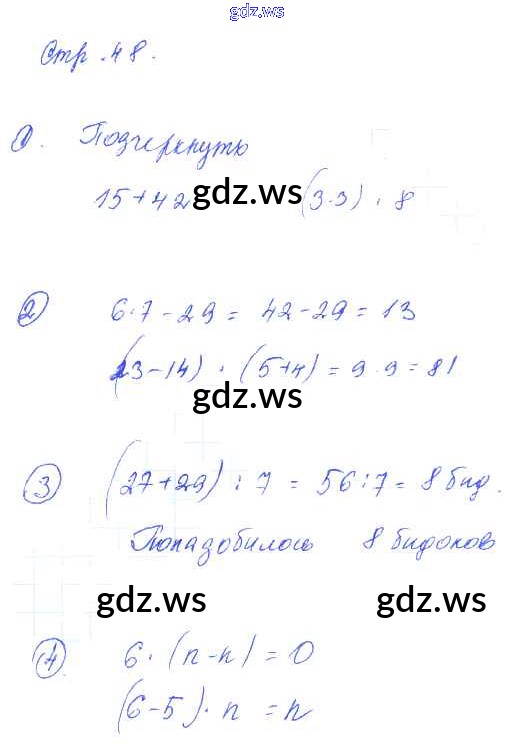 gdz.ws
Стр. 48.
1. Подчеркнуть
15+42 (3·3) · 8
gdz.ws
2 6·7-29 = 42-29 = 13
(23-14) · (5+4) = 9·9 = 81
gdz.ws
3 (27+29) : 7 = 56:7 = 8 бид.
Понадобилось 8 бидонов
gdz.ws gdz.ws
4 6·(n-n) = 0
(6-5)·n = n